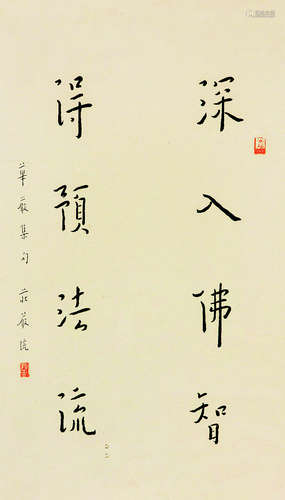 深入佛智
得預法流
華嚴集句